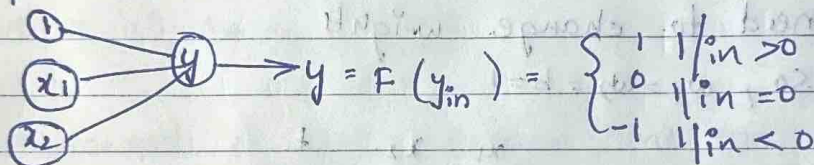 1
x₁
x₂
y → y = F (y_in) = { 1 y_in > 0
0 y_in = 0
-1 y_in < 0